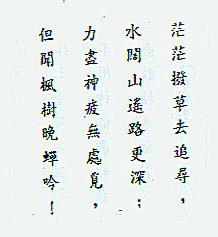 茫茫撥草去追尋，
水闊山遙路更深；
力盡神疲無處覓，
但聞楓樹晚蟬吟！